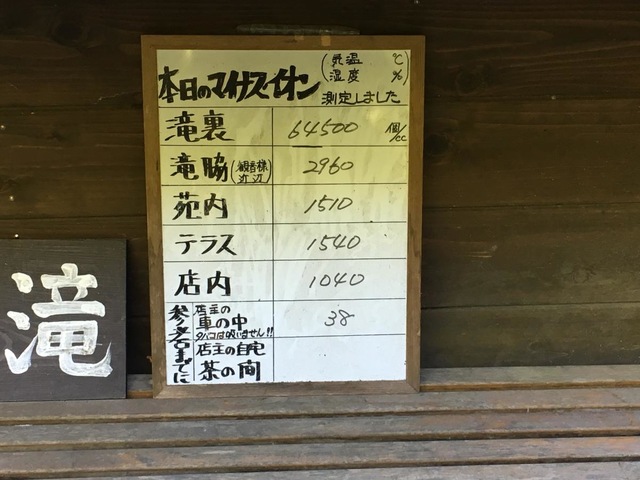 本日のマイナスイオン
(気温 ℃
湿度 %)
測定しました
滝裏 64500 個/cc
滝脇(観音様近辺) 2960
苑内 1510
テラス 1540
店内 1040
参考までに
店主の
車の中 38
タバコは吸いません!!
店主の自宅
茶の間
滝